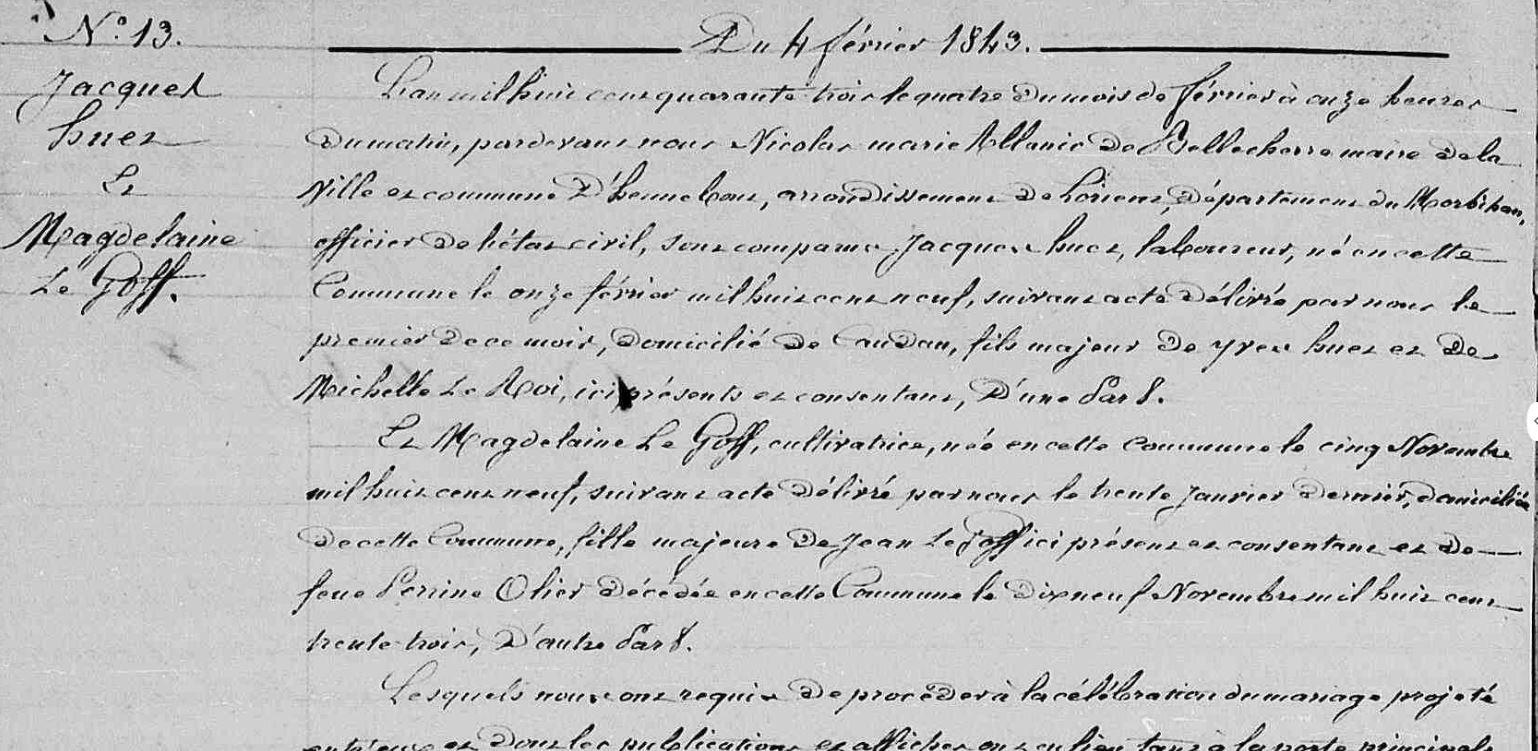 N.° 13.
Du 4 février 1843.
Jacques
huez
Et
Magdelaine
Le Goff.
L'an mil huit cent quarante-trois le quatre du mois de février à onze heures
du matin, pardevant nous Nicolas marie Allanic de Bellecherre maire de la
Ville et commune d'hennebont, arrondissement de Lorient, département du Morbihan,
officier de l'état civil, sont comparus Jacques huez, laboureur, né en cette
Commune le onze février mil huit cent neuf, suivant acte délivré par nous le
premier de ce mois, domicilié de Caudan, fils majeur de yves huez et de
Michelle Le Roi, ici présents et consentant, D'une Part.
Et Magdelaine Le Goff, cultivatrice, née en cette commune le cinq Novembre
mil huit cent neuf, suivant acte délivré par nous le trente Janvier dernier, domiciliée
de cette Commune, fille majeure de Jean Le Goff ici présent et consentant et de
feue Perrine Olier décédée en cette Commune le dix neuf Novembre mil huit cent
trente-trois, D'autre Part.
Lesquels nous ont requis de procéder à la célébration du mariage projeté
entr'eux et dont les publications et affiches ont eu lieu tant à la porte principale